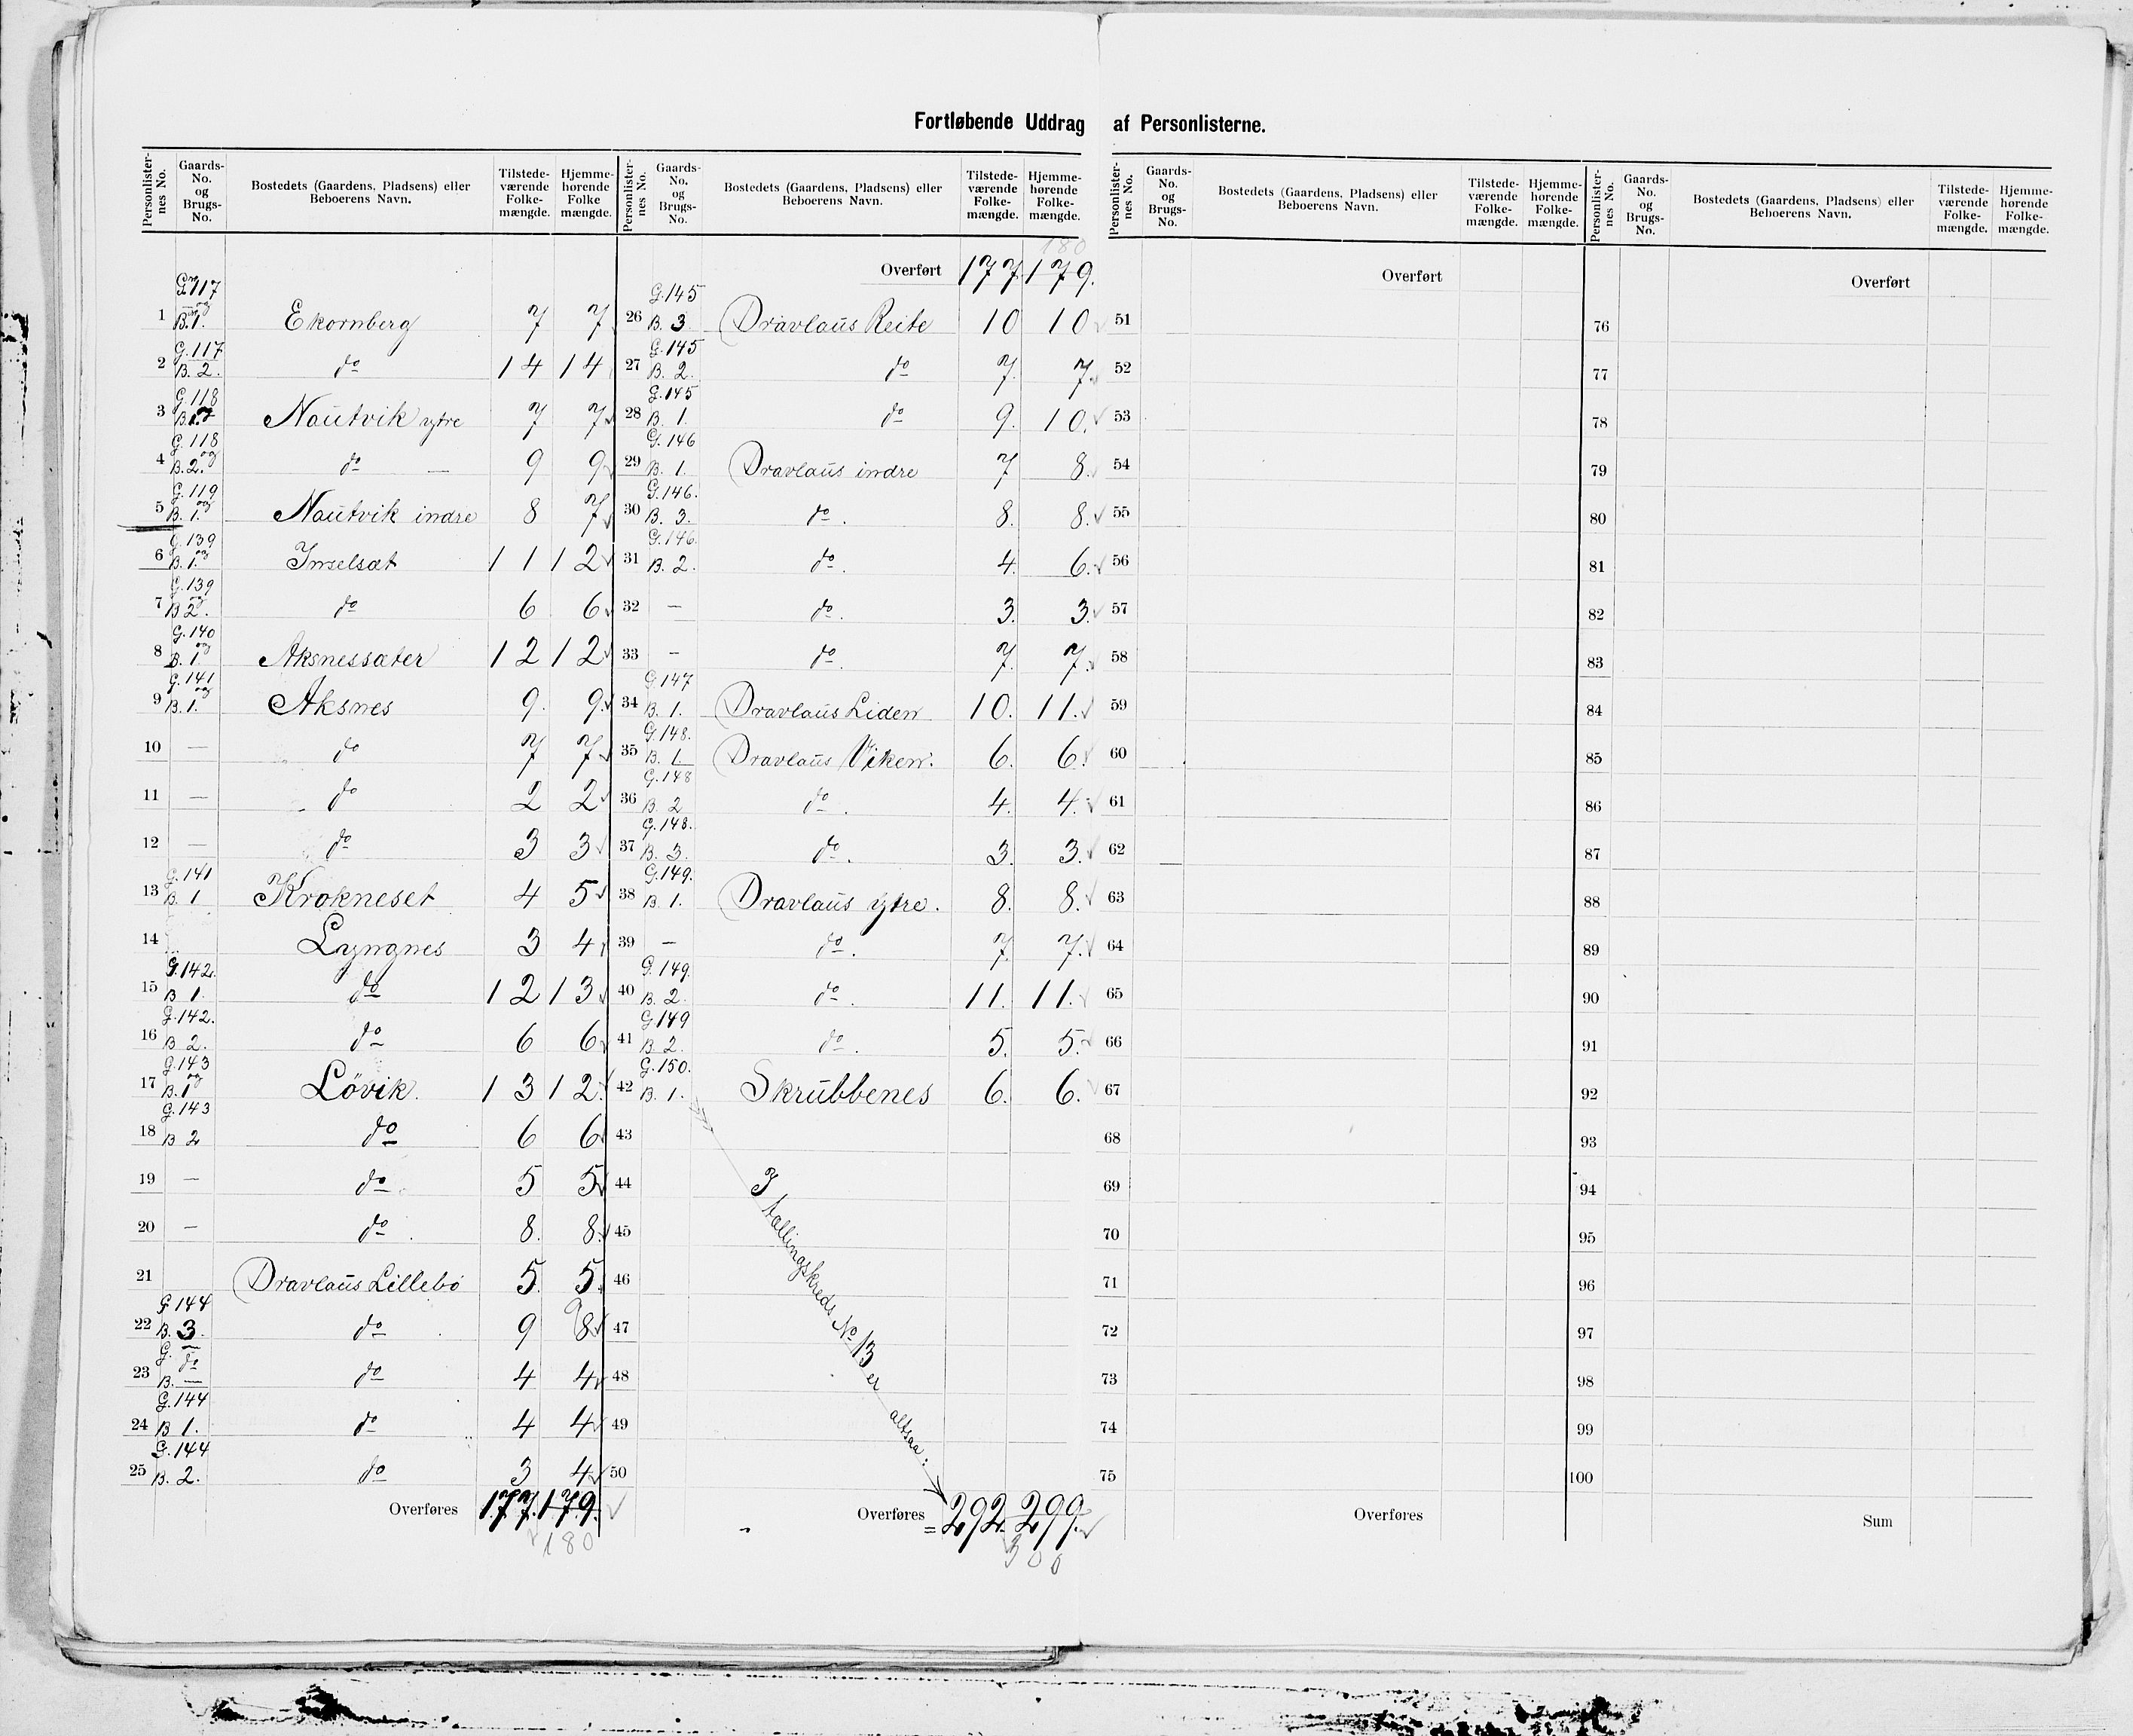 Fortløbende Uddrag af Personlisterne.
Personlister-nes No. Gaards-No. og Brugs-No. Bostedets (Gaardens, Pladsens) eller Beboerens Navn. Tilstede-værende Folke-mængde. Hjemme-hørende Folke mængde.
G. 117 og
1 B. 1. Ekornberg 7 7
2 G. 117 B. 2. do 14 14
3 G. 118 B. 1. Nautvik ytre 7 7
4 G. 118 og B. 2. do — 9 9
5 G. 119 og B. 1. Nautvik indre 8 7
6 G. 139 og B. 1. Inselsæt 11 12
7 G. 139 og B 2. do 6 6
8 G. 140 og B. 1. Aksnessæter 12 12
9 G. 141 og B. 1. Aksnes 9. 9.
10 — do 7 7
11 — do 2 2
12 — do 3 3
13 G. 141 B. 1 Krokneset 4 5
14 Lyngnes 3 4
15 G. 142. B 1. do 12 13
16 G. 142. B 2. do 6 6
17 G. 143 og B. 1 Lövik. 13 12.
18 G. 143 B 2 do 6 6
19 — do 5 5
20 — do. 8. 8.
21 Dravlaus Lillebö 5. 5.
22 G 144 B. 3. do 9 8 9
23 G. do B. — do 4 4
24 G. 144 B 1. do 4 4
25 G. 144 B. 2. do 3 4
Overføres 177. 179.
180
Personlister-nes No. Gaards-No. og Brugs-No. Bostedets (Gaardens, Pladsens) eller Beboerens Navn. Tilstede-værende Folke-mængde. Hjemme-hørende Folke-mængde.
180
Overført 177. 179.
26 G. 145 B. 3. Dravlaus Reite 10 10
27 G. 145 B. 2. do 7. 7.
28 G. 145 B. 1. do 9. 10.
29 G. 146 B. 1. Dravlaus indre 7 8.
30 G. 146. B. 3. do. 8. 8.
31 G. 146. B. 2. do. 4. 6.
32 — do. 3. 3.
33 — do. 7. 7.
34 G. 147 B. 1. Dravlaus Liden 10. 11.
35 G. 148. B. 1. Dravlaus Viken. 6. 6.
36 G. 148 B. 2 do. 4. 4.
37 G. 148. B. 3. do. 3. 3.
38 G. 149. B. 1. Dravlaus ytre. 8. 8.
39 — do. 7. 7.
40 G. 149. B. 2. do. 11. 11.
41 G 149 B 2. do. 5. 5.
42 G. 150. B. 1. Skrubbenes 6. 6.
43
44
45
46
47
48
49
50
I tællingskreds No 13 er altsaa:
Overføres = 292. 299.
300
Personlister-nes No. Gaards-No. og Brugs-No. Bostedets (Gaardens, Pladsens) eller Beboerens Navn. Tilstede-værende Folke-mængde. Hjemme-hørende Folke-mængde.
Overført
51
52
53
54
55
56
57
58
59
60
61
62
63
64
65
66
67
68
69
70
71
72
73
74
75
Overføres
Personlister-nes No. Gaards-No. og Brugs-No. Bostedets (Gaardens, Pladsens) eller Beboerens Navn. Tilstede-værende Folke-mængde. Hjemme-hørende Folke-mængde.
Overført
76
77
78
79
80
81
82
83
84
85
86
87
88
89
90
91
92
93
94
95
96
97
98
99
100
Sum